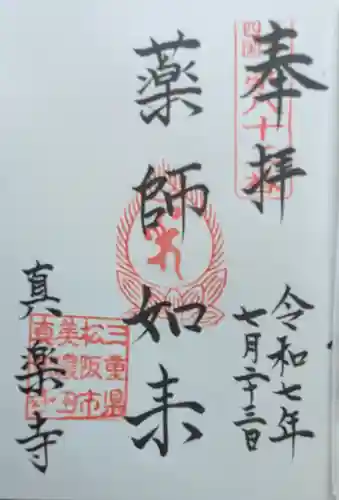 奉拝
令和七年
七月二十三日
薬師如来
真楽寺
三重県
松阪市
美濃田
真楽寺